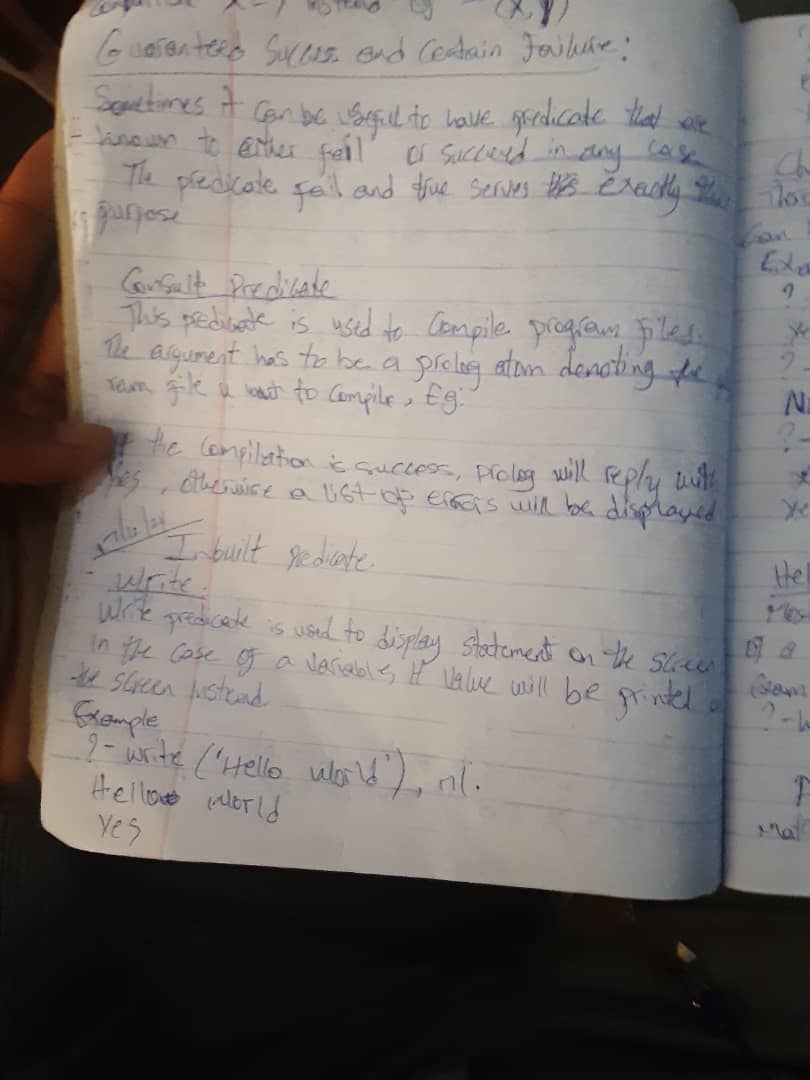 (x, y)
Guaranteed Success and Certain Failure:
Sometimes it can be useful to have predicate that are
known to either fail or succeed in any case
The predicate fail and true serves exactly this
purpose
Consult Predicate
This predicate is used to Compile program files.
The argument has to be a prolog atom denoting the
file u want to Compile, Eg:
If the Compilation is success, prolog will reply with
Yes, otherwise a list of errors will be displayed
Inbuilt predicate
Write:
Write predicate is used to display statement on the screen
in the case of a variable, it value will be printed
the screen instead
Example
?- write ('Hello world'), nl.
Hello world
Yes